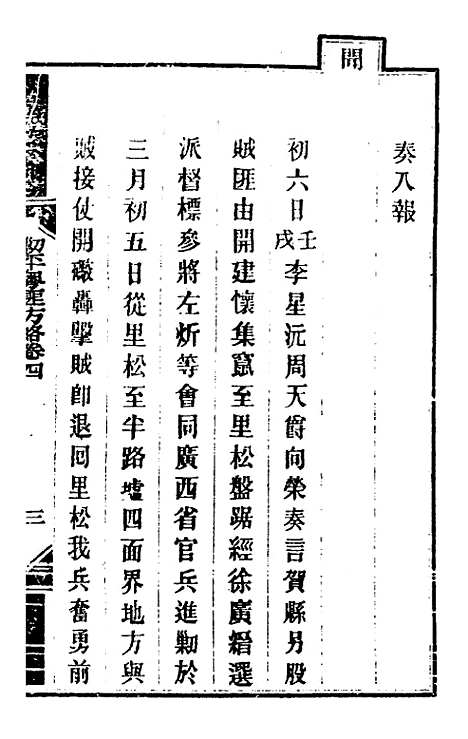 開
奏入報
初六日壬戌李星沅周天爵向榮奏言賀縣另股
賊匪由開建懷集竄至里松盤踞經徐廣縉選
派督標參將左炘等會同廣西省官兵進勦於
三月初五日從里松至半路墟四面界地方與
賊接仗開礮轟擊賊卽退回里松我兵奮勇前
方略卷四
三